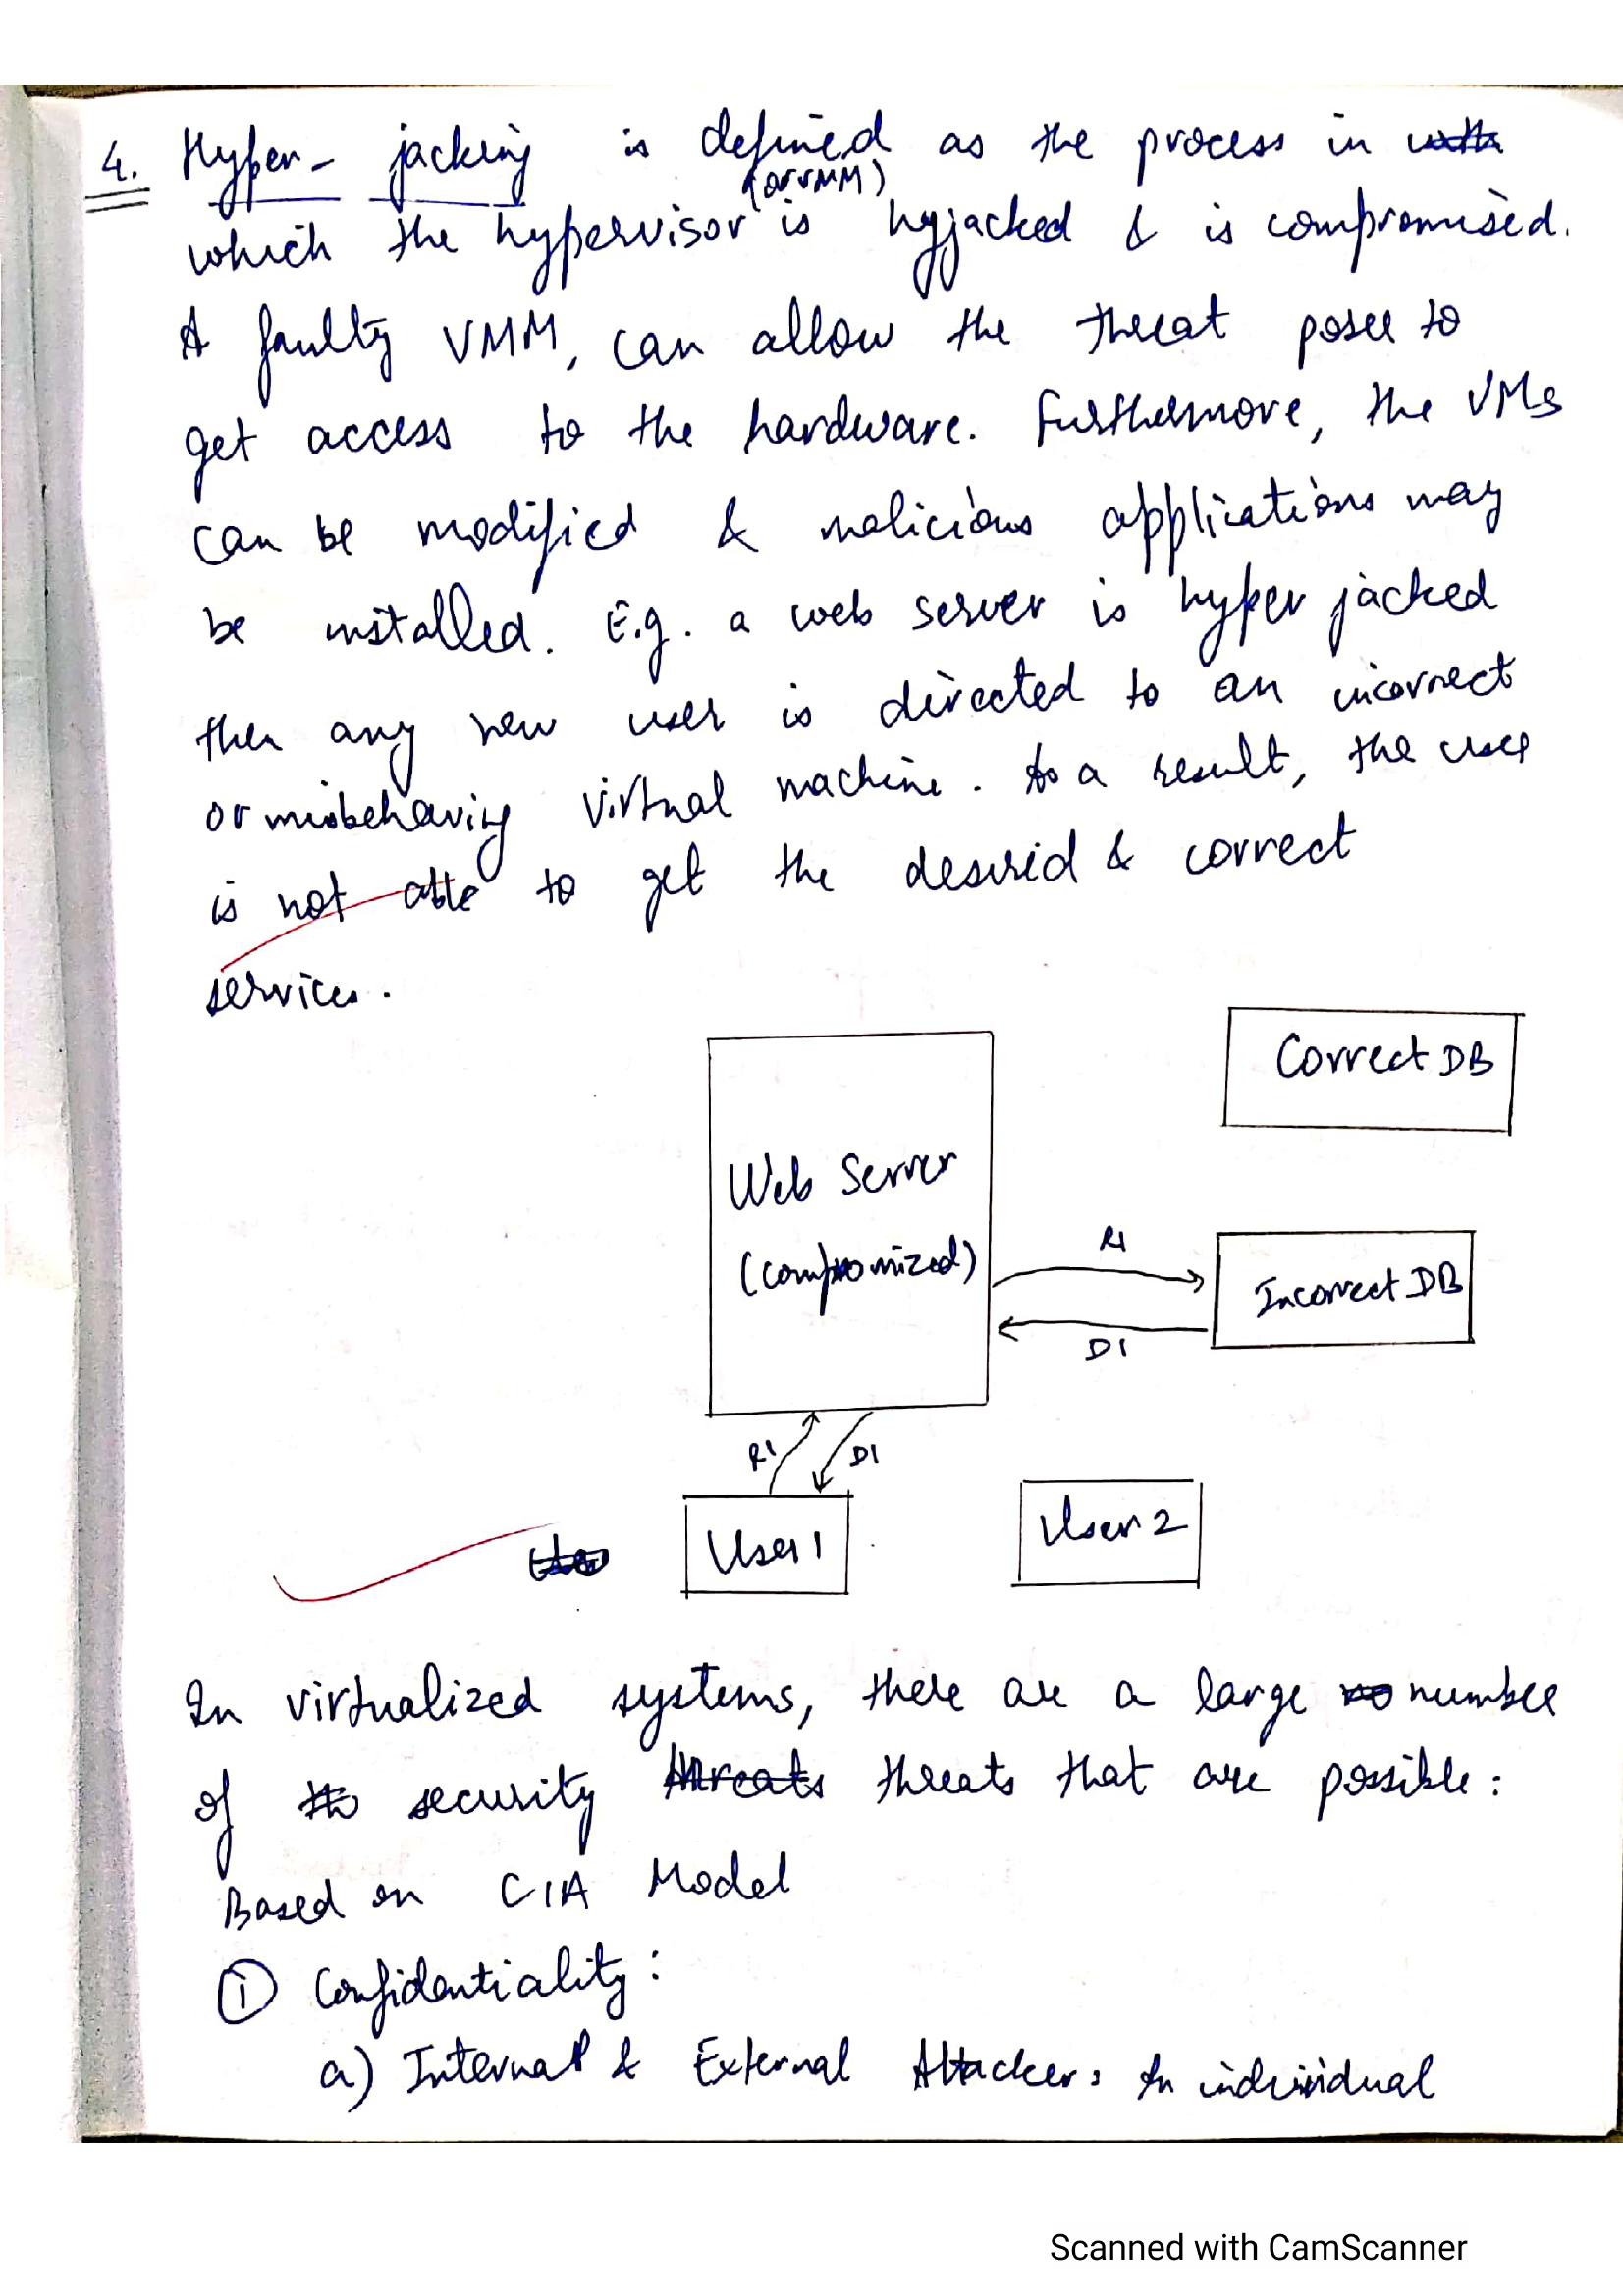 4. Hyper-jacking is defined as the process in
(or VMM)
which the hypervisor is hyjacked & is compromised.
A faulty VMM, can allow the threat poser to
get access to the hardware. Furthermore, the VMs
can be modified & malicious applications may
be installed. E.g. a web server is hyper jacked
then any new user is directed to an incorrect
or misbehaving virtual machine. As a result, the user
is not able to get the desired & correct
services.
Correct DB
Web Server
(compromized)
R1
Incorrect DB
D1
R1 D1
User 1
User 2
In virtualized systems, there are a large number
of security threats threats that are possible:
Based on CIA Model
① Confidentiality:
a) Internal & External Attacker: An individual
Scanned with CamScanner